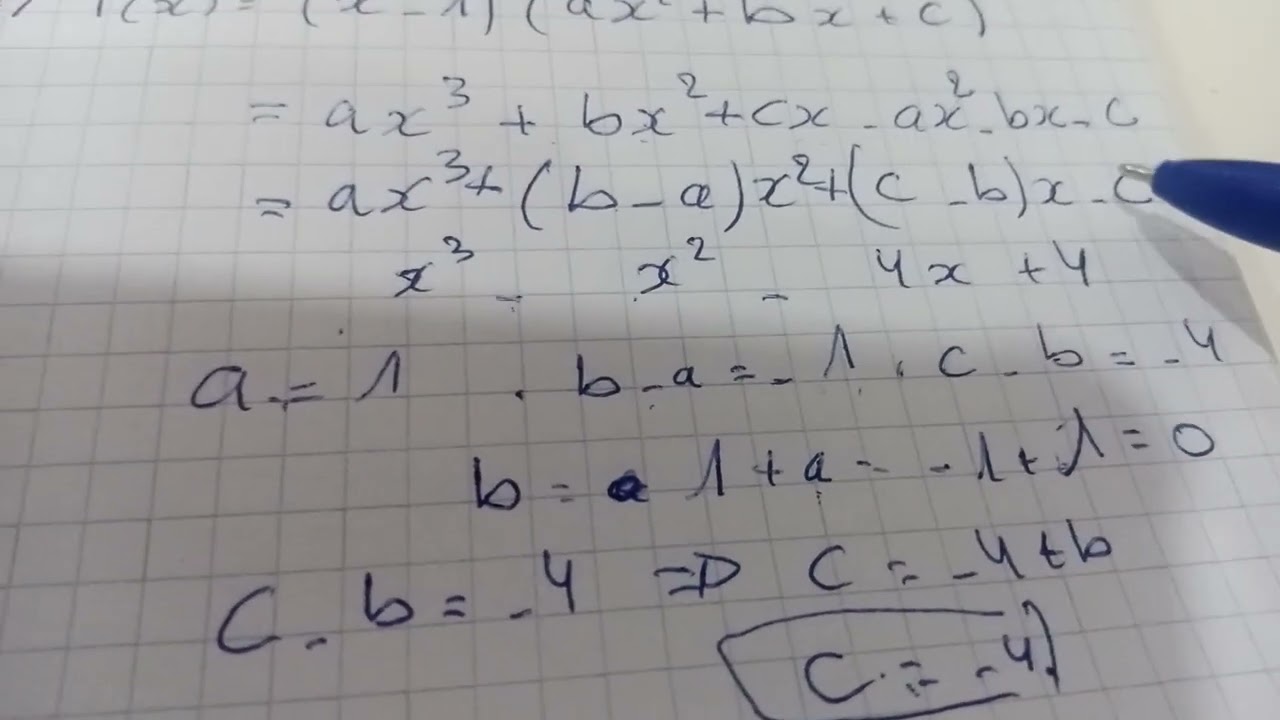 P(x) = (x - 1) (ax² + bx + c)
= ax³ + bx² + cx - ax² - bx - c
= ax³ + (b - a)x² + (c - b)x - c
x³ - x² - 4x + 4
a = 1 . b - a = - 1 , c - b = - 4
b = 1 + a = - 1 + 1 = 0
C - b = - 4 => C = - 4 + b
C = - 4